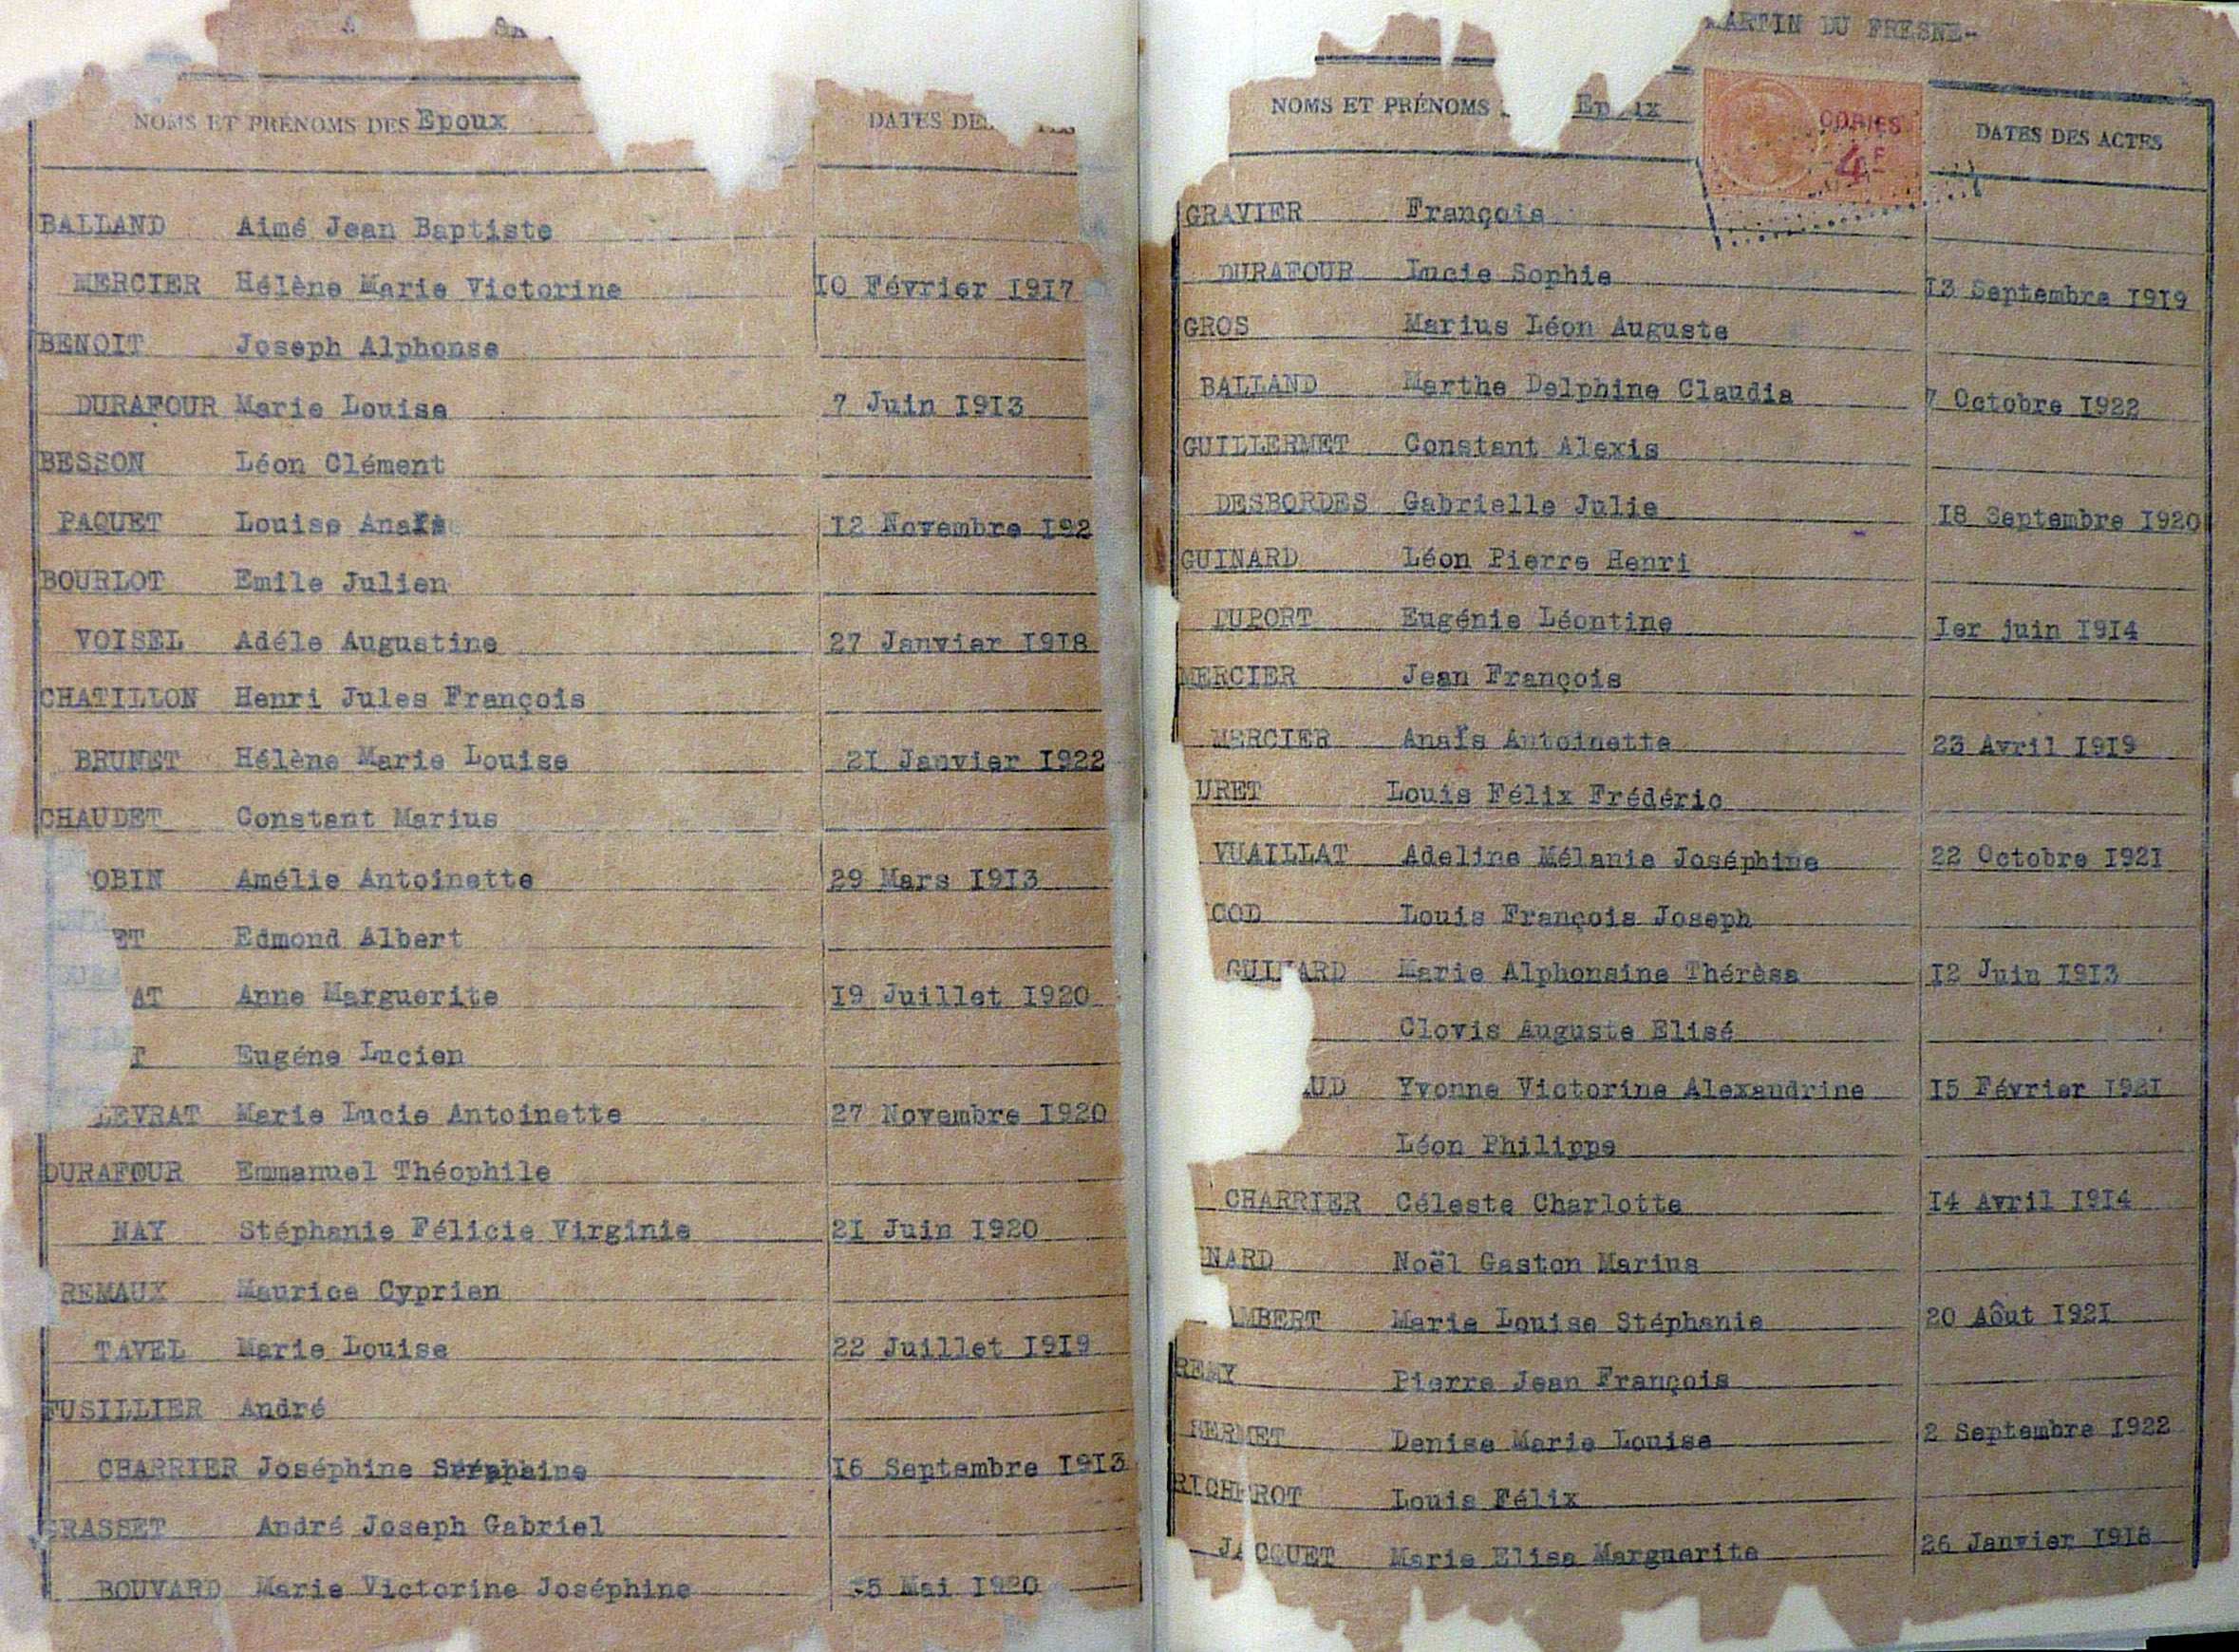 NOMS ET PRÉNOMS DES Epoux
DATES DE
BALLAND Aimé Jean Baptiste
MERCIER Hélène Marie Victorine 10 Février 1917
BENOIT Joseph Alphonse
DURAFOUR Marie Louise 7 Juin 1913
BESSON Léon Clément
PAQUET Louise Anaïs 12 Novembre 192
BOURLOT Emile Julien
VOISEL Adéle Augustine 27 Janvier 1918
CHATILLON Henri Jules François
BRUNET Hélène Marie Louise 21 Janvier 1922
CHAUDET Constant Marius
OBIN Amélie Antoinette 29 Mars 1913
ET Edmond Albert
AT Anne Marguerite 19 Juillet 1920
T Eugéne Lucien
LEVRAT Marie Lucie Antoinette 27 Novembre 1920
DURAFOUR Emmanuel Théophile
NAY Stéphanie Félicie Virginie 21 Juin 1920
REMAUX Maurice Cyprien
TAVEL Marie Louise 22 Juillet 1919
FUSILLIER André
CHARRIER Joséphine 16 Septembre 1913
GRASSET André Joseph Gabriel
BOUVARD Marie Victorine Joséphine 5 Mai 1920
MARTIN DU FRESNE-
NOMS ET PRÉNOMS Ep ux
COPIES
4F
DATES DES ACTES
GRAVIER François
DURAFOUR Lucie Sophie 13 Septembre 1919
GROS Marius Léon Auguste
BALLAND Marthe Delphine Claudia 7 Octobre 1922
GUILLERMET Constant Alexis
DESBORDES Gabrielle Julie 18 Septembre 1920
GUINARD Léon Pierre Henri
DUPORT Eugénie Léontine 1er juin 1914
MERCIER Jean François
MERCIER Anaïs Antoinette 23 Avril 1919
URET Louis Félix Frédéric
VUAILLAT Adeline Mélanie Joséphine 22 Octobre 1921
COD Louis François Joseph
GUINARD Marie Alphonsine Thérèse 12 Juin 1913
Clovis Auguste Elisé
AUD Yvonne Victorine Alexandrine 15 Février 1921
Léon Philippe
CHARRIER Céleste Charlotte 14 Avril 1914
NARD Noël Gaston Marius
AMBERT Marie Louise Stéphanie 20 Aôut 1921
REMY Pierre Jean François
BERMET Denise Marie Louise 2 Septembre 1922
RICHEROT Louis Félix
JACQUET Marie Elisa Marguerite 26 Janvier 1918